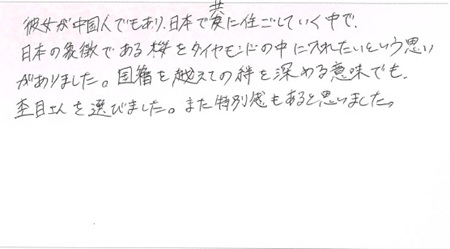 彼女が中国人でもあり、日本で共に住ごしていく中で、
日本の象徴である桜をダイヤモンドの中に入れたいという思い
がありました。国籍を越えての絆を深める意味でも、
杢目さんを選びました。また特別感もあると思いました。